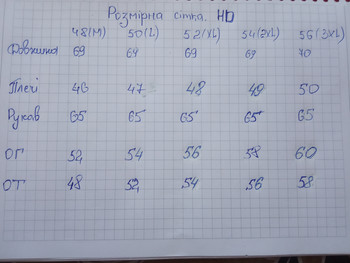 Розмірна сітка. НО
48(M) 50(L) 52(XL) 54(2XL) 56(3XL)
Довжина 69 69 69 69 70
Плечі 46 47 48 49 50
Рукав 65 65 65 65 65
ОГ 52 54 56 58 60
ОТ 48 52 54 56 58